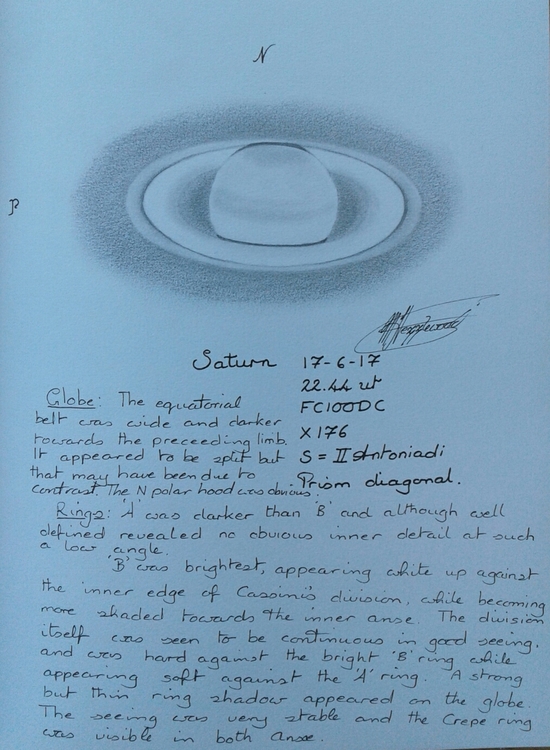 N
P
Saturn 17-6-17
22.44 ut
FC100DC
X176
S = II Antoniadi
Prism diagonal.
Globe: The equatorial
belt was wide and darker
towards the preceeding limb.
It appeared to be split but
that may have been due to
contrast. The N polar hood was obvious.
Rings: 'A' was darker than 'B' and although well
defined revealed no obvious inner detail at such
a low angle.
'B' was brightest, appearing white up against
the inner edge of Cassini's division, while becoming
more shaded towards the inner ansae. The division
itself was seen to be continuous in good seeing.
and was hard against the bright 'B' ring while
appearing soft against the 'A' ring. A strong
but thin ring shadow appeared on the globe.
The seeing was very stable and the Crepe ring
was visible in both ansae.